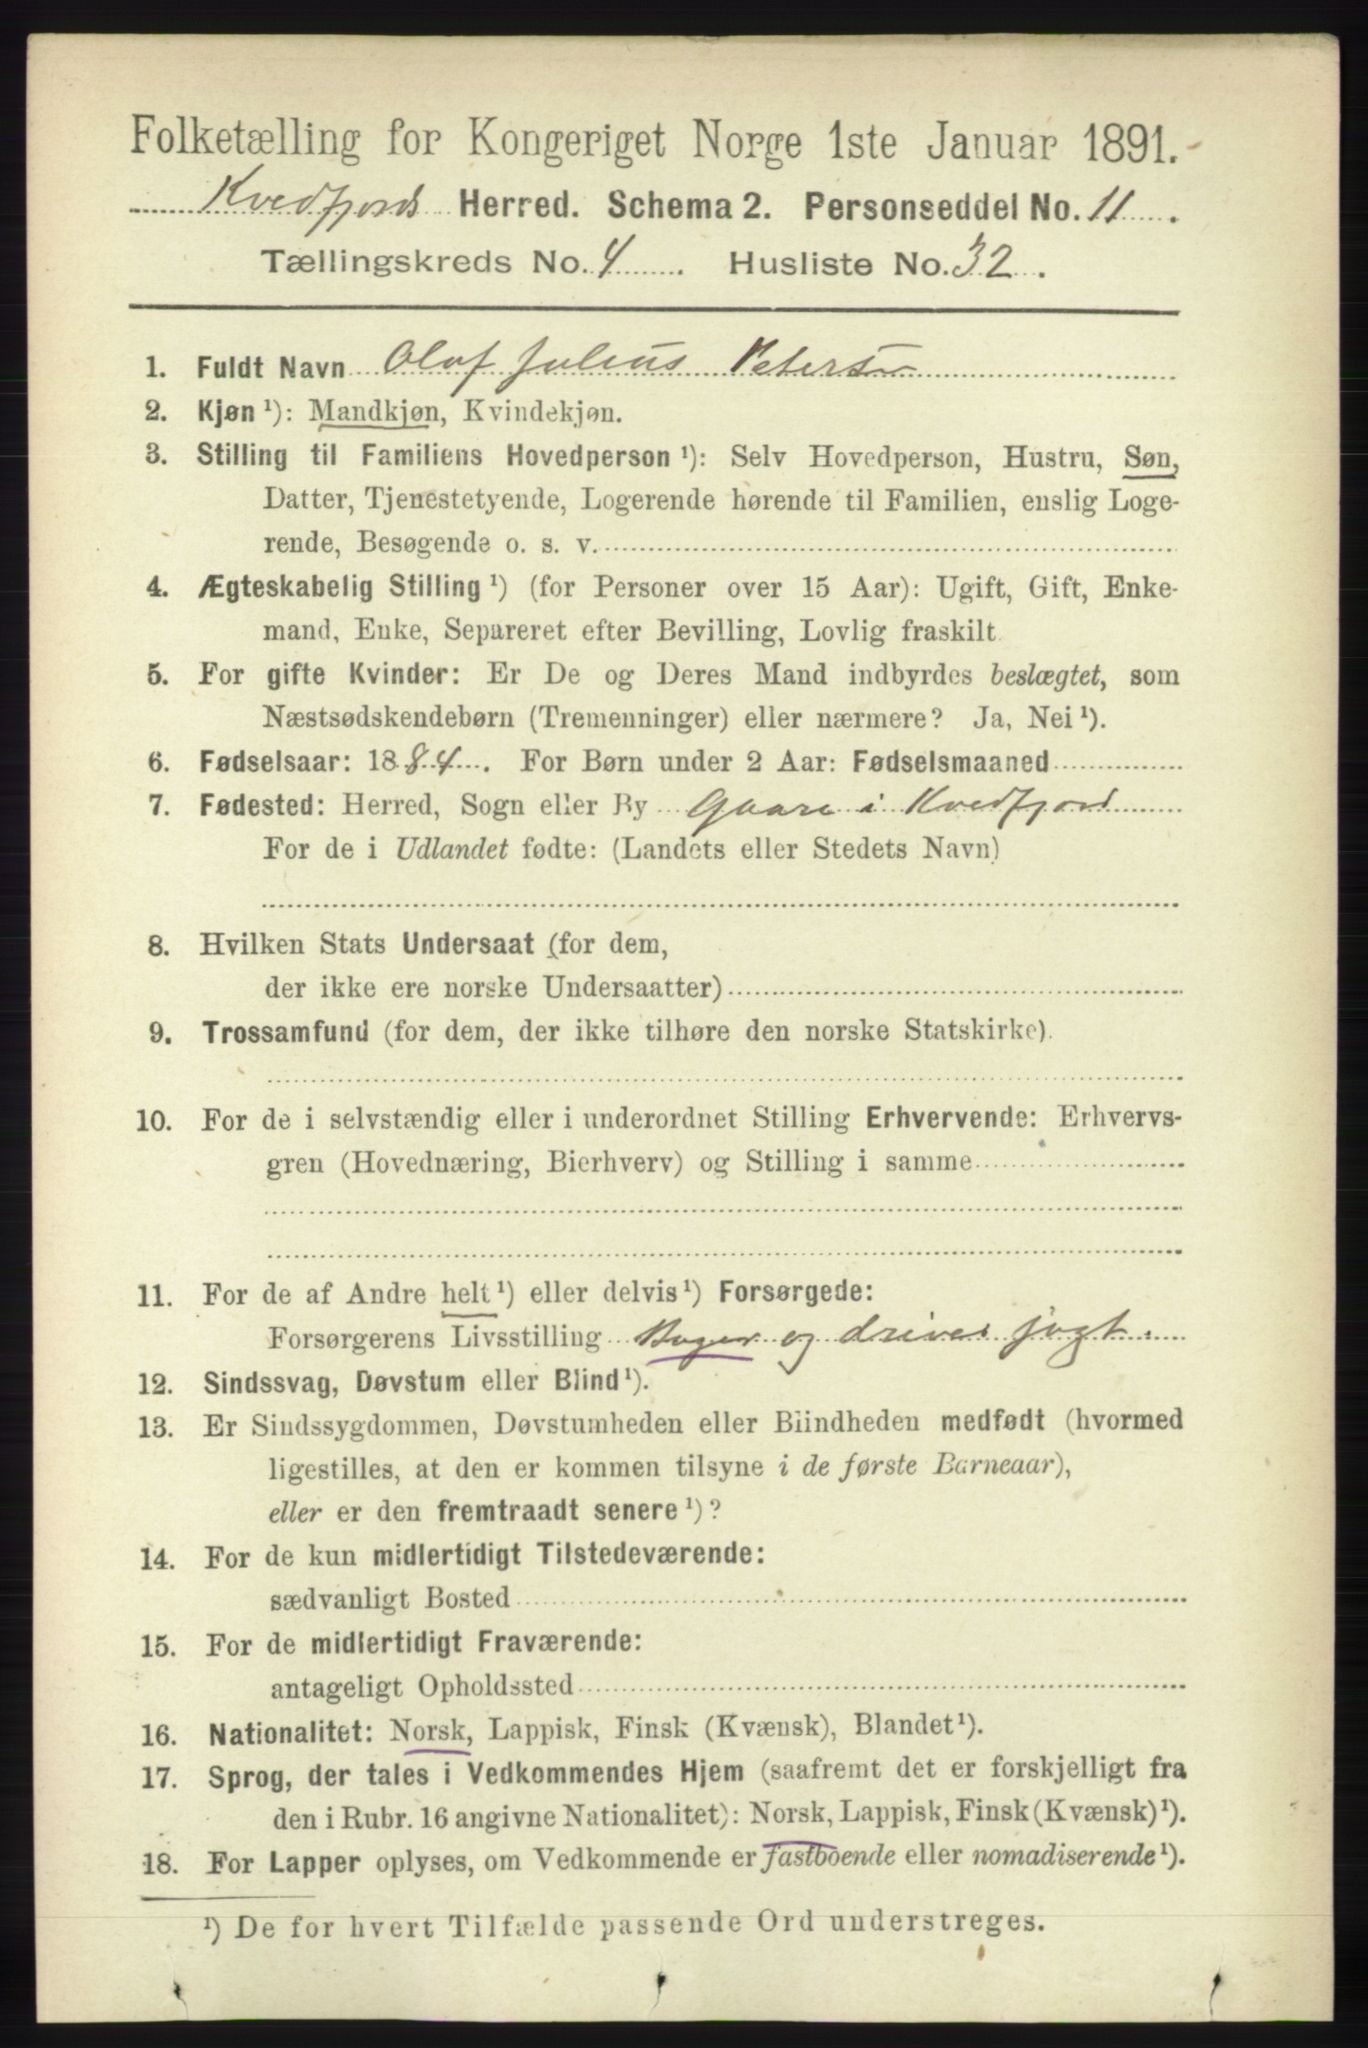 Folketælling for Kongeriget Norge 1ste Januar 1891.
Kvedfjords Herred. Schema 2. Personseddel No. 11.
Tællingskreds No. 4. Husliste No. 32.
1. Fuldt Navn Olaf Julius Petersen
2. Kjøn ¹): Mandkjøn, Kvindekjøn.
3. Stilling til Familiens Hovedperson ¹): Selv Hovedperson, Hustru, Søn,
Datter, Tjenestetyende, Logerende hørende til Familien, enslig Loge-
rende, Besøgende o. s. v.
4. Ægteskabelig Stilling ¹) (for Personer over 15 Aar): Ugift, Gift, Enke-
mand, Enke, Separeret efter Bevilling, Lovlig fraskilt
5. For gifte Kvinder: Er De og Deres Mand indbyrdes beslægtet, som
Næstsødskendebørn (Tremenninger) eller nærmere? Ja, Nei ¹).
6. Fødselsaar: 1884. For Børn under 2 Aar: Fødselsmaaned
7. Fødested: Herred, Sogn eller By Gaare i Kvedfjord
For de i Udlandet fødte: (Landets eller Stedets Navn)
8. Hvilken Stats Undersaat (for dem,
der ikke ere norske Undersaatter)
9. Trossamfund (for dem, der ikke tilhøre den norske Statskirke).
10. For de i selvstændig eller i underordnet Stilling Erhvervende: Erhvervs-
gren (Hovednæring, Bierhverv) og Stilling i samme
11. For de af Andre helt ¹) eller delvis ¹) Forsørgede:
Forsørgerens Livsstilling og driver jagt.
12. Sindssvag, Døvstum eller Blind ¹).
13. Er Sindssygdommen, Døvstumheden eller Blindheden medfødt (hvormed
ligestilles, at den er kommen tilsyne i de første Barneaar),
eller er den fremtraadt senere ¹)?
14. For de kun midlertidigt Tilstedeværende:
sædvanligt Bosted
15. For de midlertidigt Fraværende:
antageligt Opholdssted
16. Nationalitet: Norsk, Lappisk, Finsk (Kvænsk), Blandet ¹).
17. Sprog, der tales i Vedkommendes Hjem (saafremt det er forskjelligt fra
den i Rubr. 16 angivne Nationalitet): Norsk, Lappisk, Finsk (Kvænsk) ¹).
18. For Lapper oplyses, om Vedkommende er fastboende eller nomadiserende ¹).
¹) De for hvert Tilfælde passende Ord understreges.